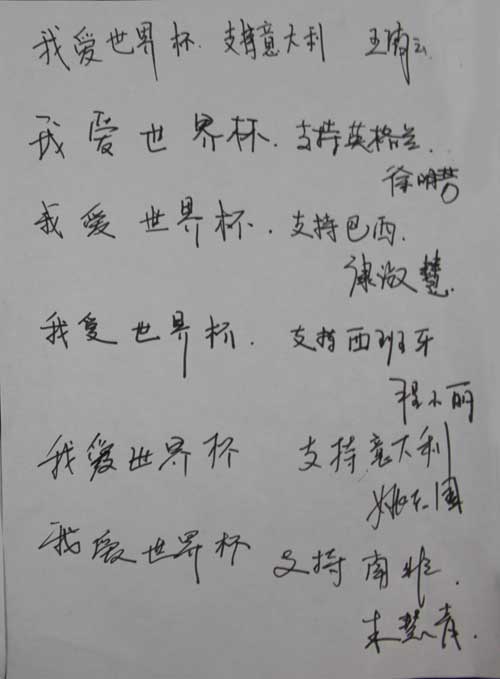 我爱世界杯.支持意大利 王
我爱世界杯.支持英格兰.
徐明
我爱世界杯.支持巴西.
淑慧.
我爱世界杯.支持西班牙
程小丽
我爱世界杯 支持意大利
姚国
我爱世界杯 支持南非.
朱慧青.